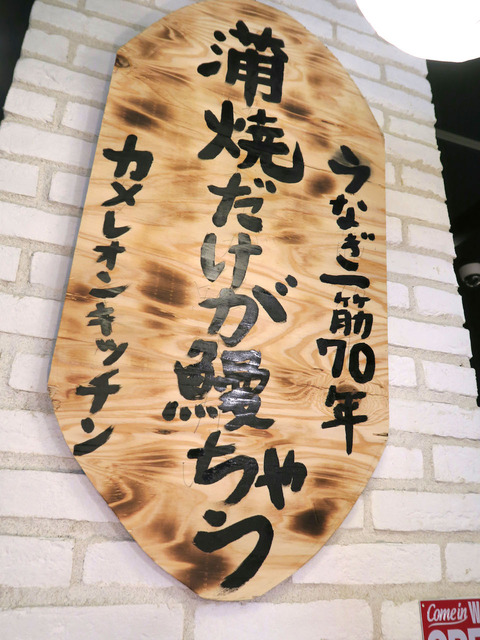 うなぎ一筋70年
蒲焼だけが鰻ちゃう
カメレオンキッチン
Come in